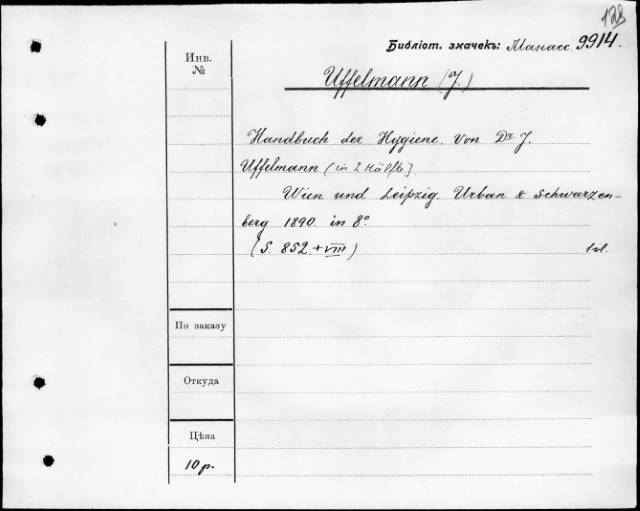 128
Библіот. значекъ: Манасс. 9914.
Инв.
№
Uffelmann (J.)
Handbuch der Hygiene. Von Dr J.
Uffelmann (in 2 Hälfte]
Wien und Leipzig. Urban & Schwarzen-
berg 1890. in 8º
(S. 852 + VIII)
1 vl.
По заказу
Откуда
Цѣна
10 р.